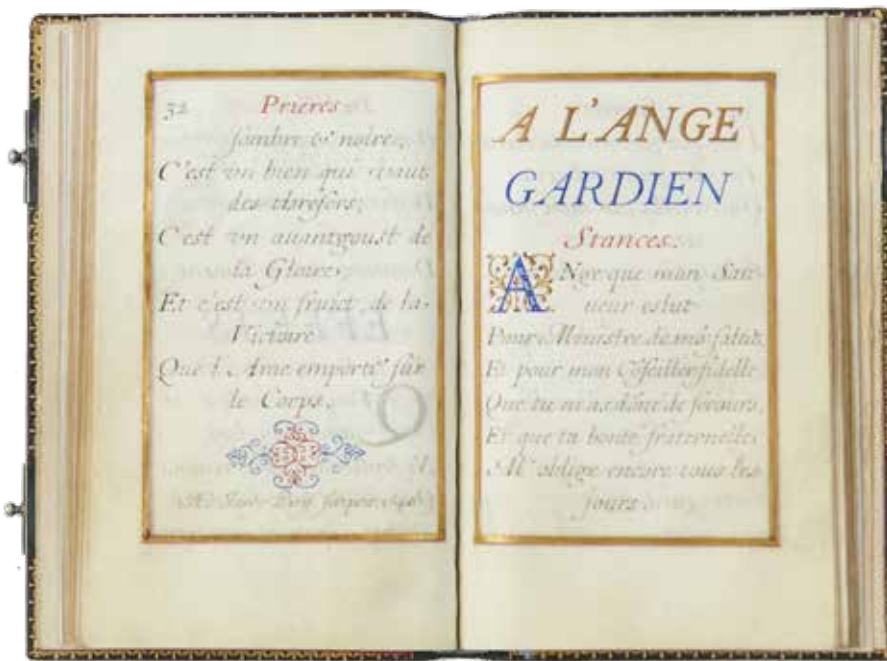 32 Prieres
sombre & noire,
C'est vn bien qui vaut
des thresors,
C'est vn auantgoust de
la Gloire,
Et c'est vn fruict de la
Victoire
Que l'Ame emporte sur
le Corps.
A L'ANGE
GARDIEN
Stances.
ANge que mon Sau-
ueur eslut
Pour Ministre de mō salut,
Et pour mon Cōseiller fidelle
Que tu m'as dōné de secours,
Et que ta bonté fraternelle
M'oblige encore tous les
jours